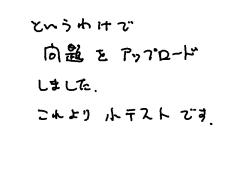 というわけで
問題を アップロード
しました.
これより 小テストです.